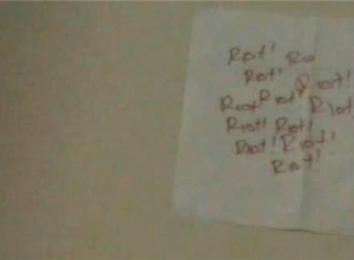 Rot! Ro
Rot! Riot!
Rot Rot! Riot
Riot! Rot!
Rot! Riot!
Rot!